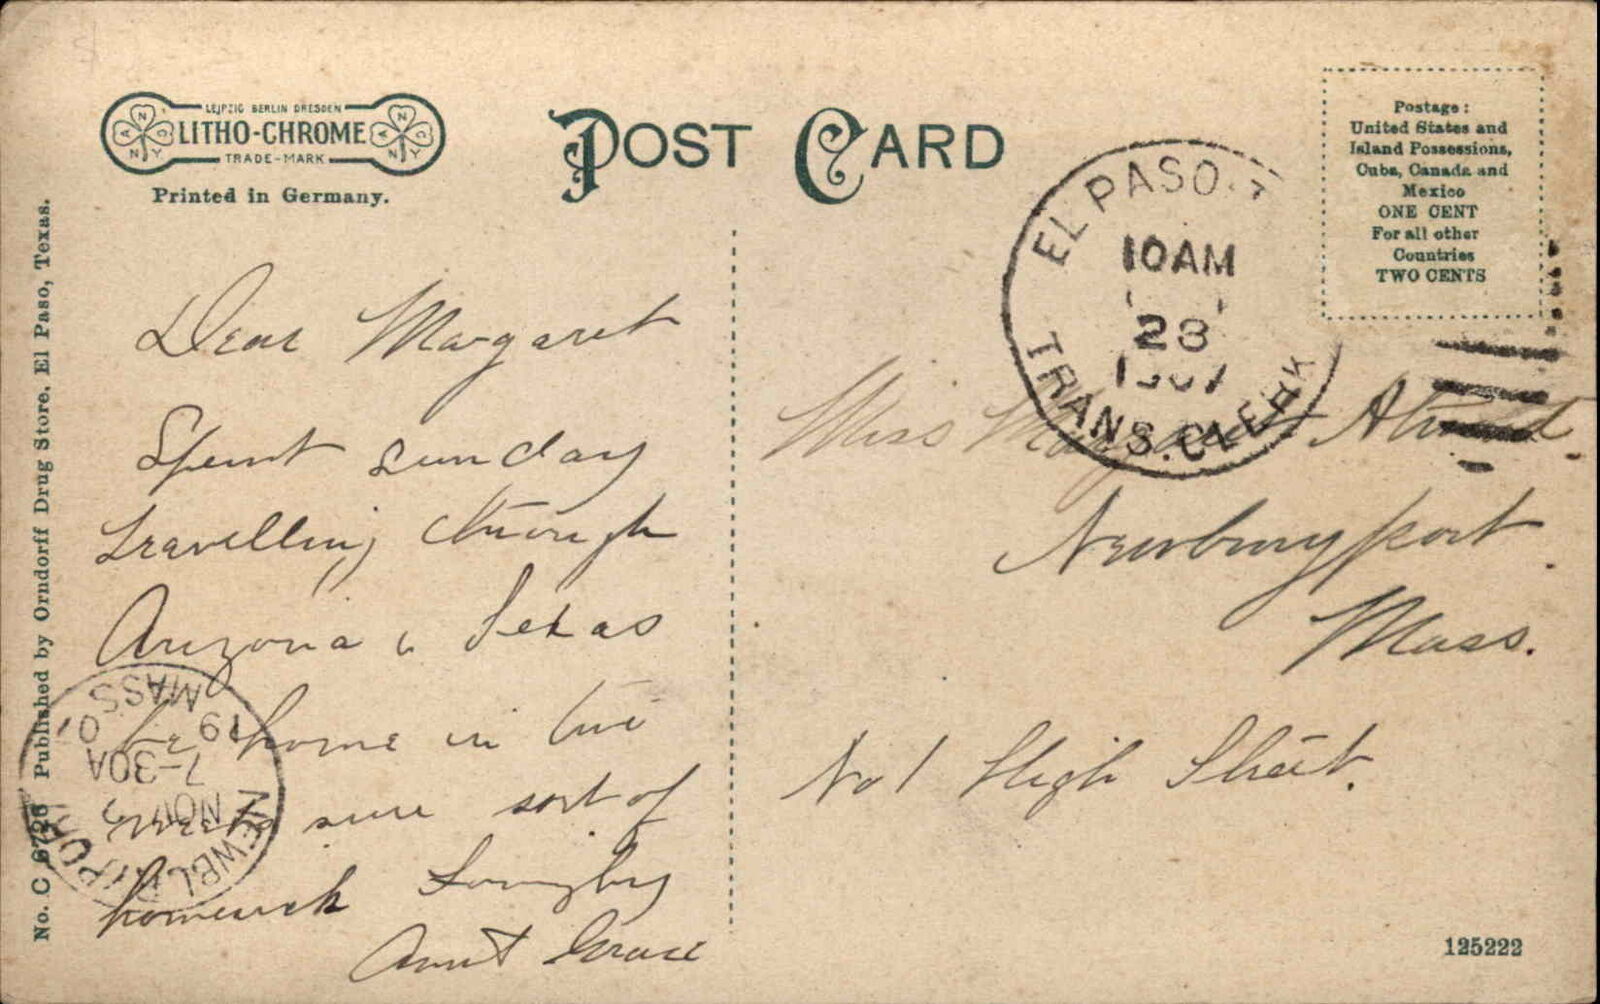 LEIPZIG BERLIN DRESDEN
LITHO-CHROME
TRADE-MARK
Printed in Germany.
POST CARD
Postage:
United States and
Island Possessions,
Cuba, Canada and
Mexico
ONE CENT
For all other
Countries
TWO CENTS
EL PASO, T
10AM
28
1907
TRANS. CLERK
No. C 6726 Published by Orndorff Drug Store, El Paso, Texas.
Dear Margaret
Spent sunday
travelling through
Arizona & Texas
be home in two
weeks sure sort of
homesick Lovingly
Aunt Grace
Miss Margaret Atwood.
Newburyport.
Mass.
No 1 High Street.
NEWBURYPORT
NOV 3
7-30A
1907
MASS
125222